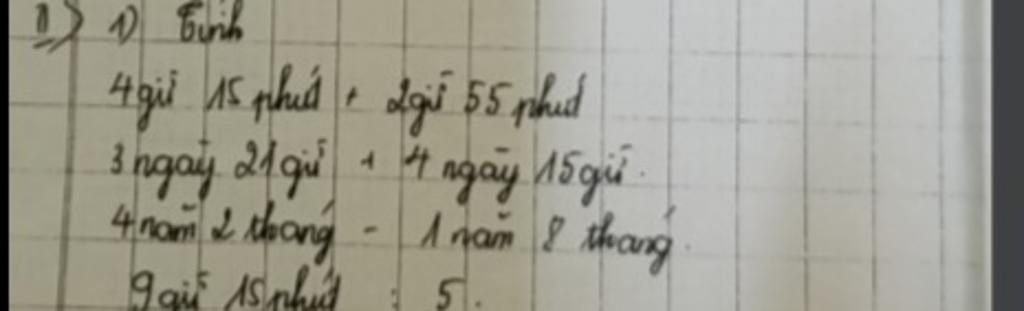 II) 1) Tính
4 giờ 15 phút + 2 giờ 55 phút
3 ngày 21 giờ + 4 ngày 15 giờ.
4 năm 2 tháng - 1 năm 8 tháng.
9 giờ 15 phút : 5.